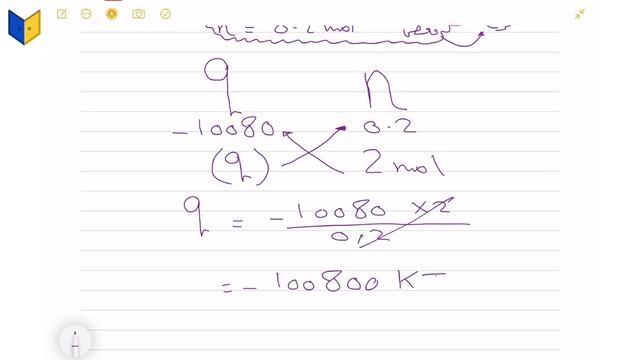 n = 0.2 mol
q n
-10080 0.2
(q) 2 mol
q = -10080 × 2
0.2
= - 100800 K